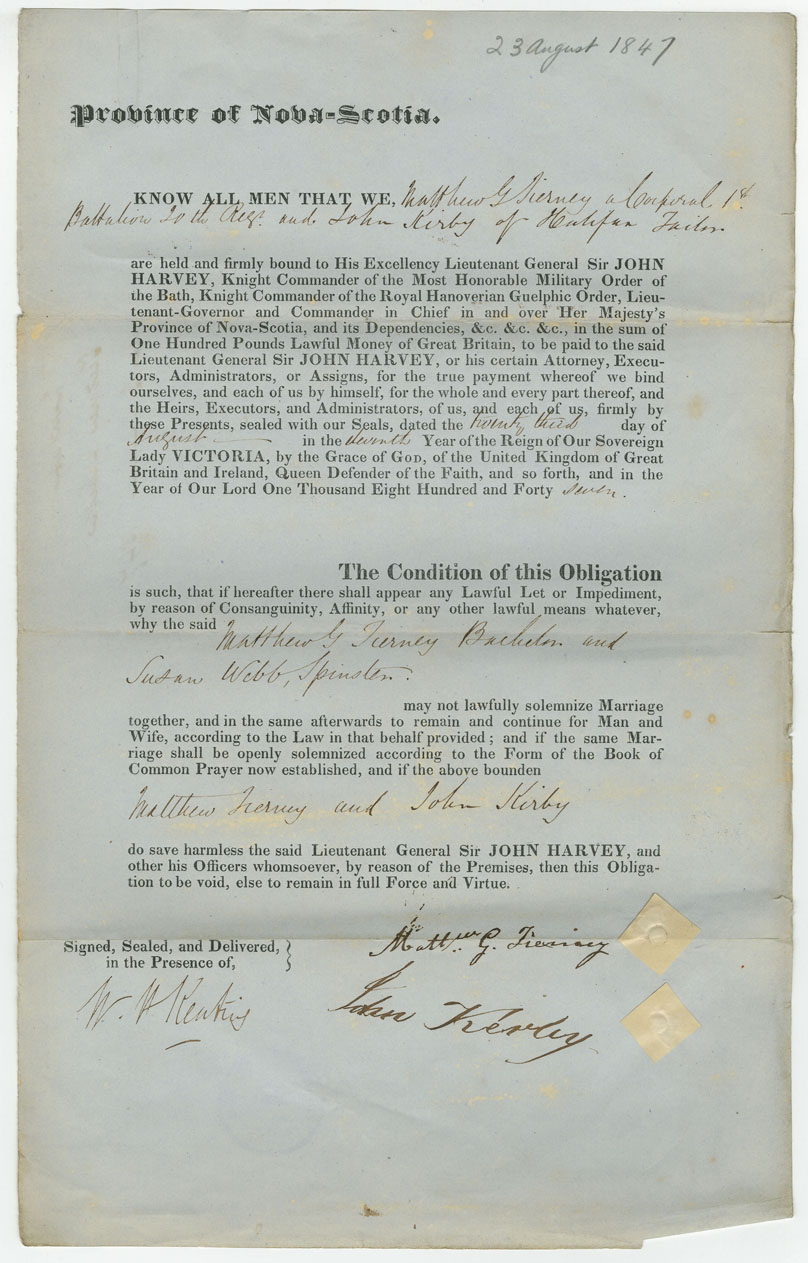 23 August 1847
Province of Nova-Scotia.
KNOW ALL MEN THAT WE, Matthew G Tierney a Corporal 1st
Battalion 20th Regt. and John Kirby of Halifax Tailor
are held and firmly bound to His Excellency Lieutenant General Sir JOHN
HARVEY, Knight Commander of the Most Honorable Military Order of
the Bath, Knight Commander of the Royal Hanoverian Guelphic Order, Lieu-
tenant-Governor and Commander in Chief in and over Her Majesty's
Province of Nova-Scotia, and its Dependencies, &c. &c. &c., in the sum of
One Hundred Pounds Lawful Money of Great Britain, to be paid to the said
Lieutenant General Sir JOHN HARVEY, or his certain Attorney, Execu-
tors, Administrators, or Assigns, for the true payment whereof we bind
ourselves, and each of us by himself, for the whole and every part thereof, and
the Heirs, Executors, and Administrators, of us, and each of us, firmly by
these Presents, sealed with our Seals, dated the twenty third day of
August in the seventh Year of the Reign of Our Sovereign
Lady VICTORIA, by the Grace of GOD, of the United Kingdom of Great
Britain and Ireland, Queen Defender of the Faith, and so forth, and in the
Year of Our Lord One Thousand Eight Hundred and Forty seven.
The Condition of this Obligation
is such, that if hereafter there shall appear any Lawful Let or Impediment,
by reason of Consanguinity, Affinity, or any other lawful means whatever,
why the said Matthew G Tierney Bachelor and
Susan Webb, Spinster.
may not lawfully solemnize Marriage
together, and in the same afterwards to remain and continue for Man and
Wife, according to the Law in that behalf provided; and if the same Mar-
riage shall be openly solemnized according to the Form of the Book of
Common Prayer now established, and if the above bounden
Matthew Tierney and John Kirby
do save harmless the said Lieutenant General Sir JOHN HARVEY, and
other his Officers whomsoever, by reason of the Premises, then this Obliga-
tion to be void, else to remain in full Force and Virtue.
Signed, Sealed, and Delivered,
in the Presence of,
Matthw. G. Tierney
W. H Keating
John Kerby